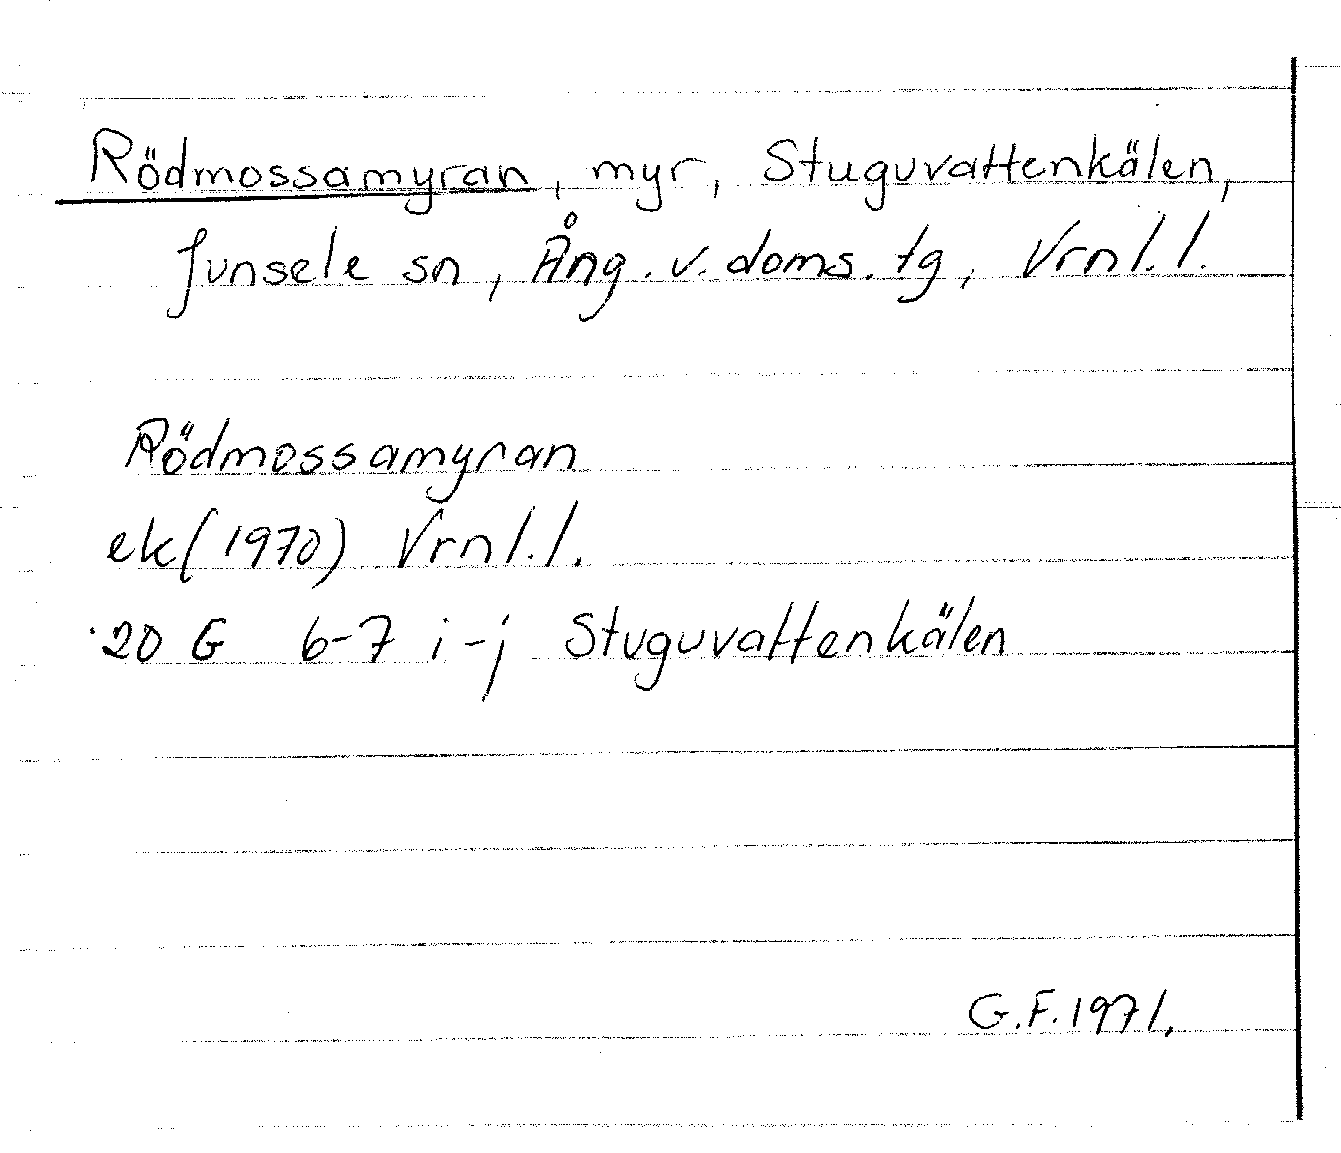 Rödmossamyran, myr, Stuguvattenkälen,
Junsele sn, Ång. v. doms. tg, Vrnl.l.
Rödmossamyran
ek (1970) Vrnl.l.
20 G 6-7 i-j Stuguvattenkälen
G.F. 1971.